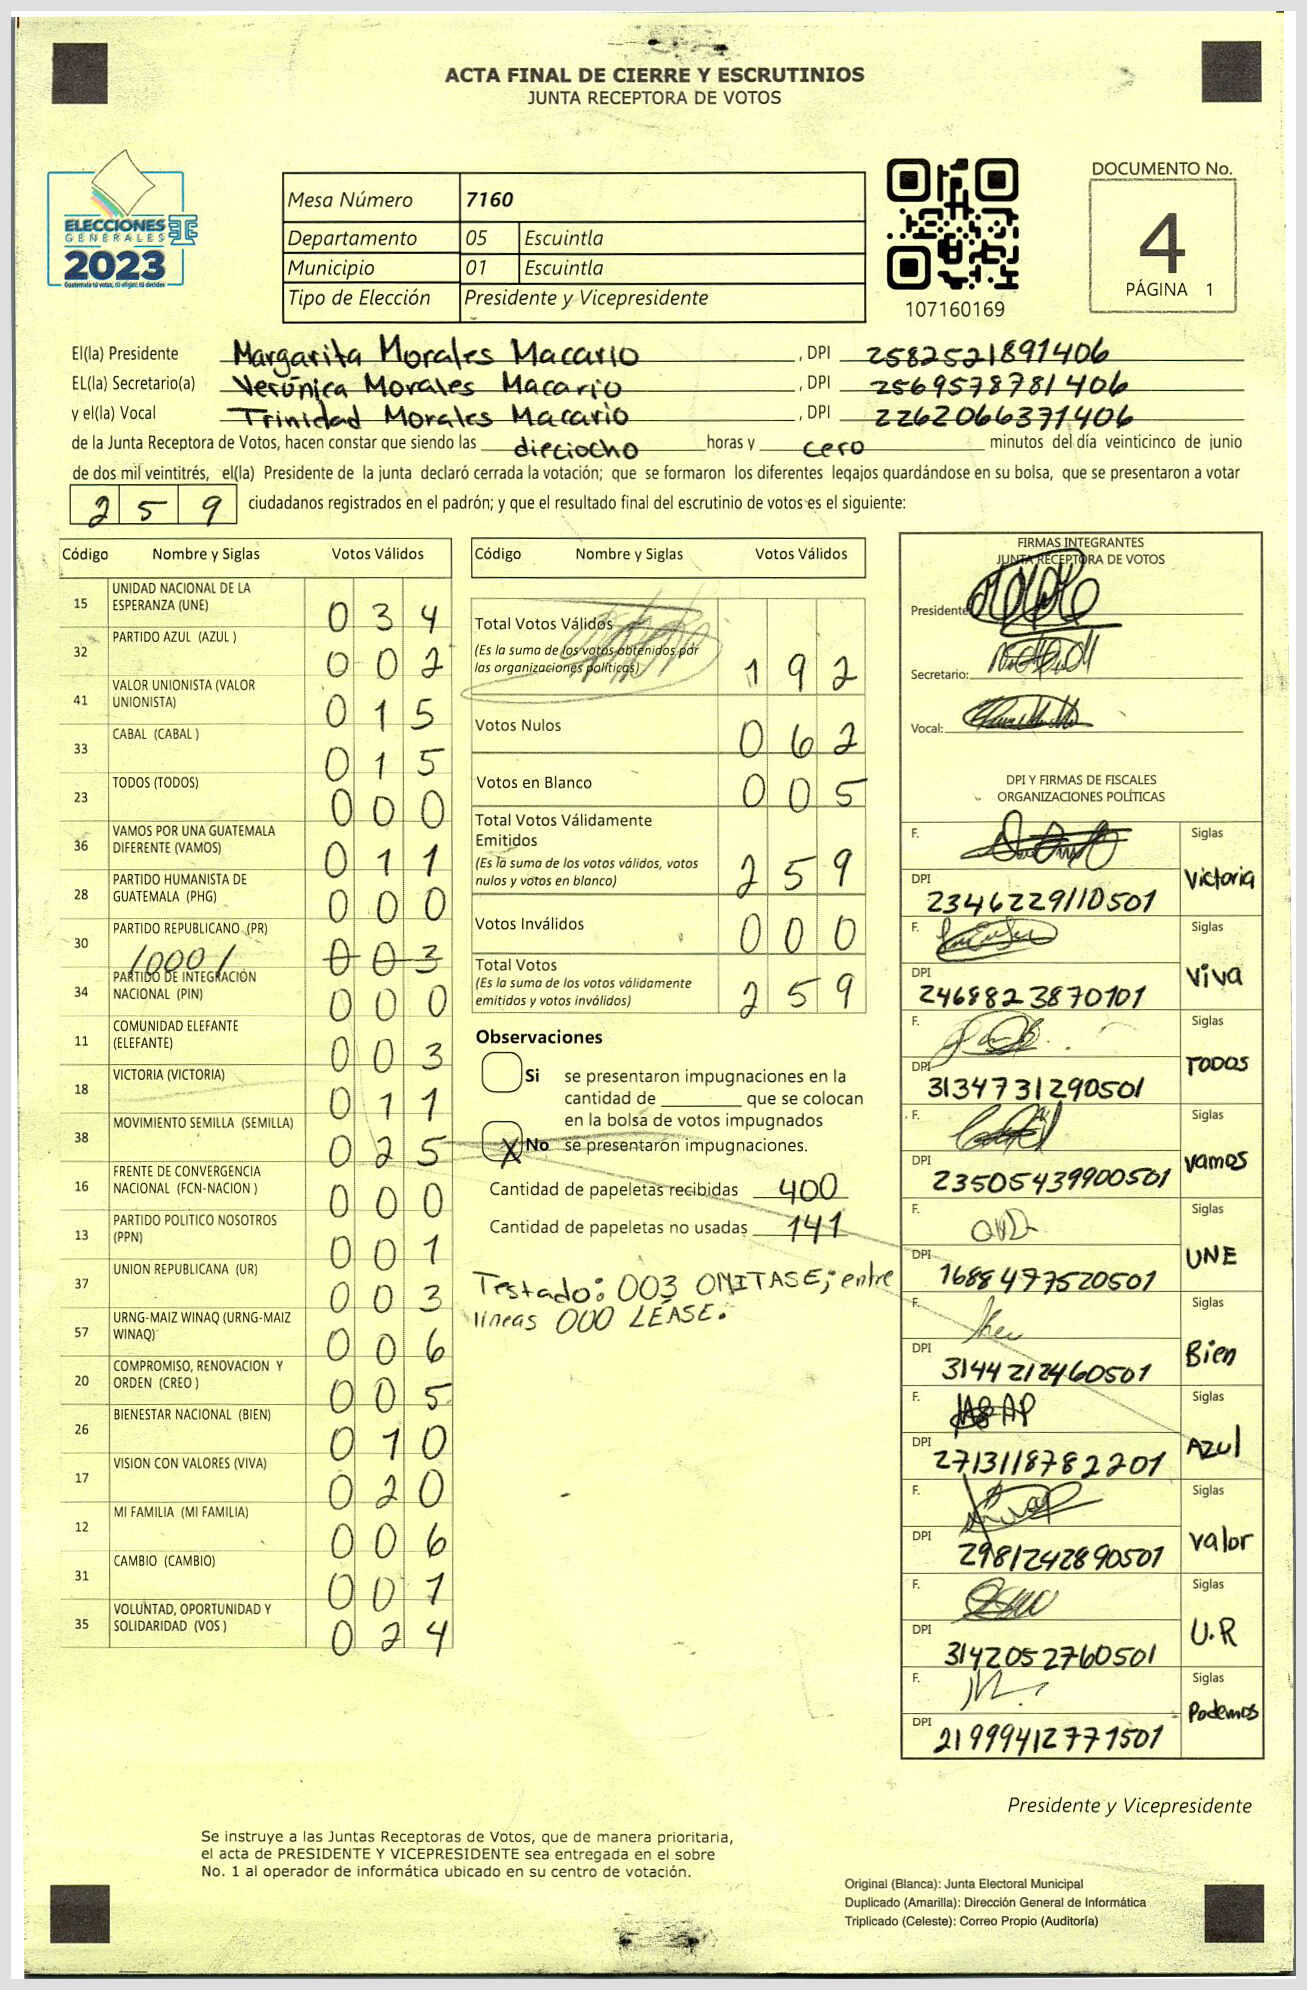 ACTA FINAL DE CIERRE Y ESCRUTINIOS
JUNTA RECEPTORA DE VOTOS
ELECCIONES
GENERALES
2023
Guatemala tú votas, tú eliges, tú decides
Mesa Número 7160
Departamento 05 Escuintla
Municipio 01 Escuintla
Tipo de Elección Presidente y Vicepresidente
107160169
DOCUMENTO No.
4
PÁGINA 1
El(la) Presidente Margarita Morales Macario , DPI 2582521891406
EL(la) Secretario(a) Verónica Morales Macario , DPI 2569578781406
y el(la) Vocal Trinidad Morales Macario , DPI 2262066371406
de la Junta Receptora de Votos, hacen constar que siendo las dieciocho horas y cero minutos del día veinticinco de junio
de dos mil veintitrés, el(la) Presidente de la junta declaró cerrada la votación; que se formaron los diferentes legajos guardándose en su bolsa, que se presentaron a votar
259 ciudadanos registrados en el padrón; y que el resultado final del escrutinio de votos es el siguiente:
Código Nombre y Siglas Votos Válidos
15 UNIDAD NACIONAL DE LA
ESPERANZA (UNE) 034
32 PARTIDO AZUL (AZUL ) 002
41 VALOR UNIONISTA (VALOR
UNIONISTA) 015
33 CABAL (CABAL ) 015
23 TODOS (TODOS) 000
36 VAMOS POR UNA GUATEMALA
DIFERENTE (VAMOS) 011
28 PARTIDO HUMANISTA DE
GUATEMALA (PHG) 000
30 PARTIDO REPUBLICANO (PR)
/000/ 003
34 PARTIDO DE INTEGRACIÓN
NACIONAL (PIN) 000
11 COMUNIDAD ELEFANTE
(ELEFANTE) 003
18 VICTORIA (VICTORIA) 011
38 MOVIMIENTO SEMILLA (SEMILLA) 025
16 FRENTE DE CONVERGENCIA
NACIONAL (FCN-NACION ) 000
13 PARTIDO POLITICO NOSOTROS
(PPN) 001
37 UNION REPUBLICANA (UR) 003
57 URNG-MAIZ WINAQ (URNG-MAIZ
WINAQ) 006
20 COMPROMISO, RENOVACION Y
ORDEN (CREO ) 005
26 BIENESTAR NACIONAL (BIEN) 010
17 VISION CON VALORES (VIVA) 020
12 MI FAMILIA (MI FAMILIA) 006
31 CAMBIO (CAMBIO) 001
35 VOLUNTAD, OPORTUNIDAD Y
SOLIDARIDAD (VOS ) 024
Código Nombre y Siglas Votos Válidos
Total Votos Válidos
(Es la suma de los votos obtenidos por
las organizaciones políticas) 192
Votos Nulos 062
Votos en Blanco 005
Total Votos Válidamente
Emitidos
(Es la suma de los votos válidos, votos
nulos y votos en blanco) 259
Votos Inválidos 000
Total Votos
(Es la suma de los votos válidamente
emitidos y votos inválidos) 259
Observaciones
Si se presentaron impugnaciones en la
cantidad de ________ que se colocan
en la bolsa de votos impugnados
X No se presentaron impugnaciones.
Cantidad de papeletas recibidas 400
Cantidad de papeletas no usadas 141
Testado: 003 OMITASE; entre
líneas 000 LÉASE.
FIRMAS INTEGRANTES
JUNTA RECEPTORA DE VOTOS
Presidente:
Secretario:
Vocal:
DPI Y FIRMAS DE FISCALES
ORGANIZACIONES POLÍTICAS
F. Siglas
DPI 2346229110501 Victoria
F. Siglas
DPI 2468823870101 Viva
F. Siglas
DPI 3134731290501 TODOS
F. Siglas
DPI 2350543990501 Vamos
F. Siglas
DPI 1688497520501 UNE
F. Siglas
DPI 3144212460501 Bien
F. Siglas
DPI 2713118782201 Azul
F. Siglas
DPI 2981242890501 Valor
F. Siglas
DPI 3142052760501 U.R
F. Siglas
DPI 21999412771501 Podemos
Presidente y Vicepresidente
Se instruye a las Juntas Receptoras de Votos, que de manera prioritaria,
el acta de PRESIDENTE Y VICEPRESIDENTE sea entregada en el sobre
No. 1 al operador de informática ubicado en su centro de votación.
Original (Blanca): Junta Electoral Municipal
Duplicado (Amarilla): Dirección General de Informática
Triplicado (Celeste): Correo Propio (Auditoría)